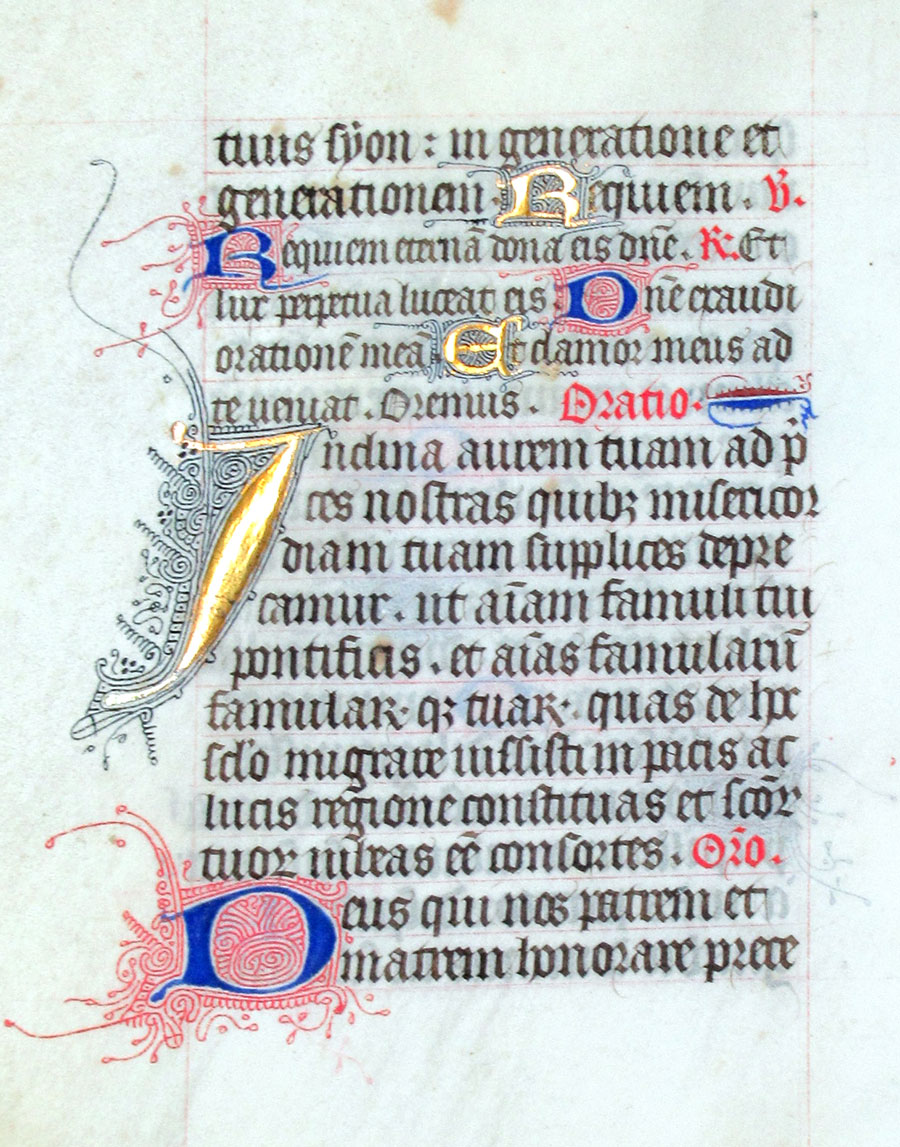 tuus syon : in generatione et
generationem . Requiem . V.
Requiem eternā dona eis dnē . R. Et
lux perpetua luceat eis . Dnē exaudi
orationē meā Et clamor meus ad
te veniat . Oremus . Oratio .
Inclina aurem tuam ad p̄
ces nostras quibꝫ misericor
diam tuam supplices depre
camur . ut aīam famuli tui
pontificis . et aīas famularū
famulaꝝ qꝫ tuaꝝ . quas de hoc
sclo migrare iussisti in pacis ac
lucis regione constituas et scōr
tuoꝝ iubeas eē consortes . Orō .
Deus qui nos patrem et
matrem honorare prece